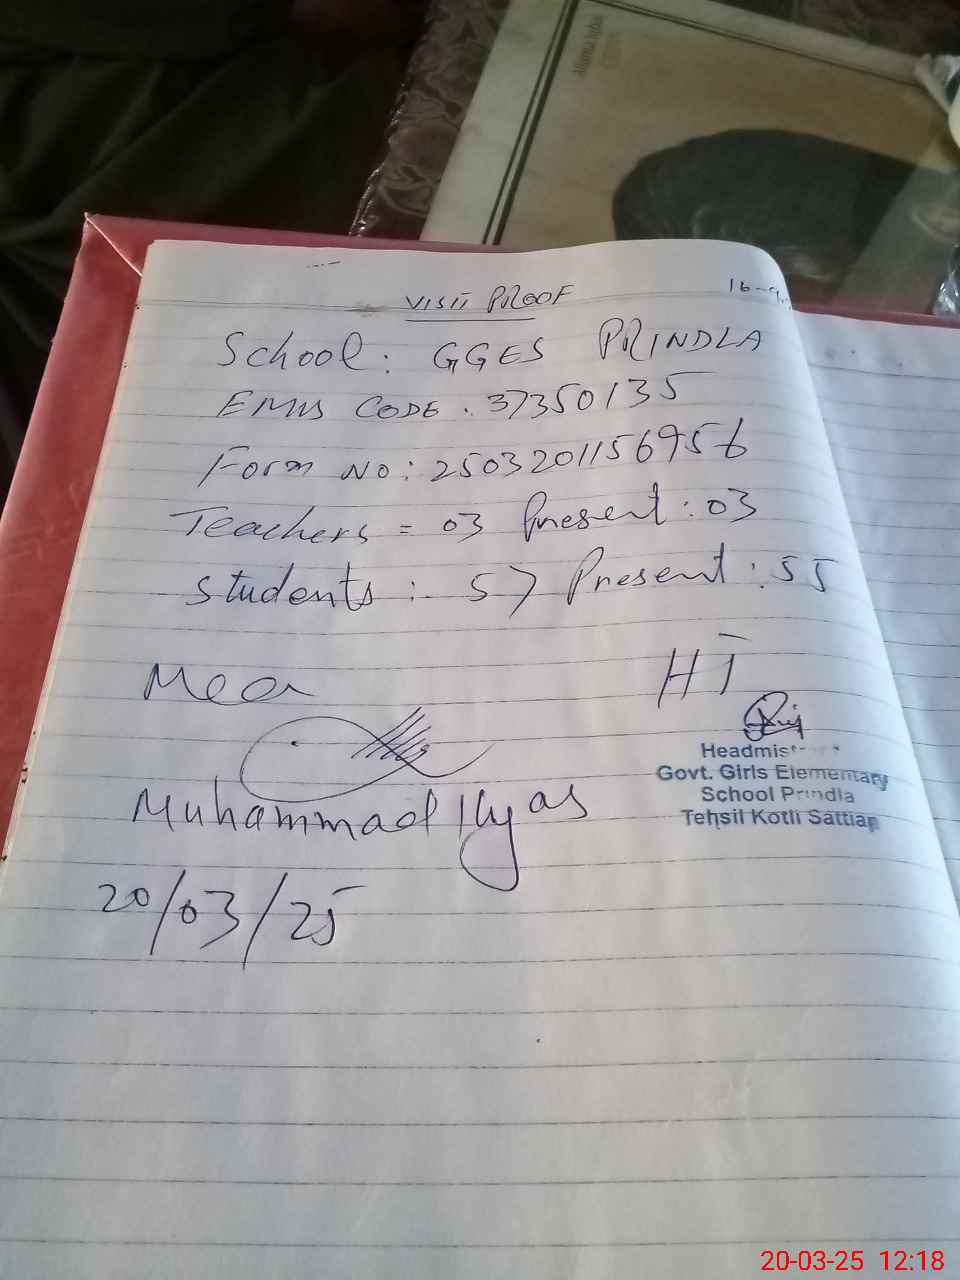 Allama Iqbal
VISIT PROOF
School: GGES PRINDLA
EMIS CODE. 37350135
Form NO: 2503201156956
Teachers = 03 Present: 03
students: 57 Present: 55
Mea
HT
Muhammad Ilyas
20/03/25
Govt. Girls Elementary
School Prindla
Tehsil Kotli Sattian
20-03-25 12:18